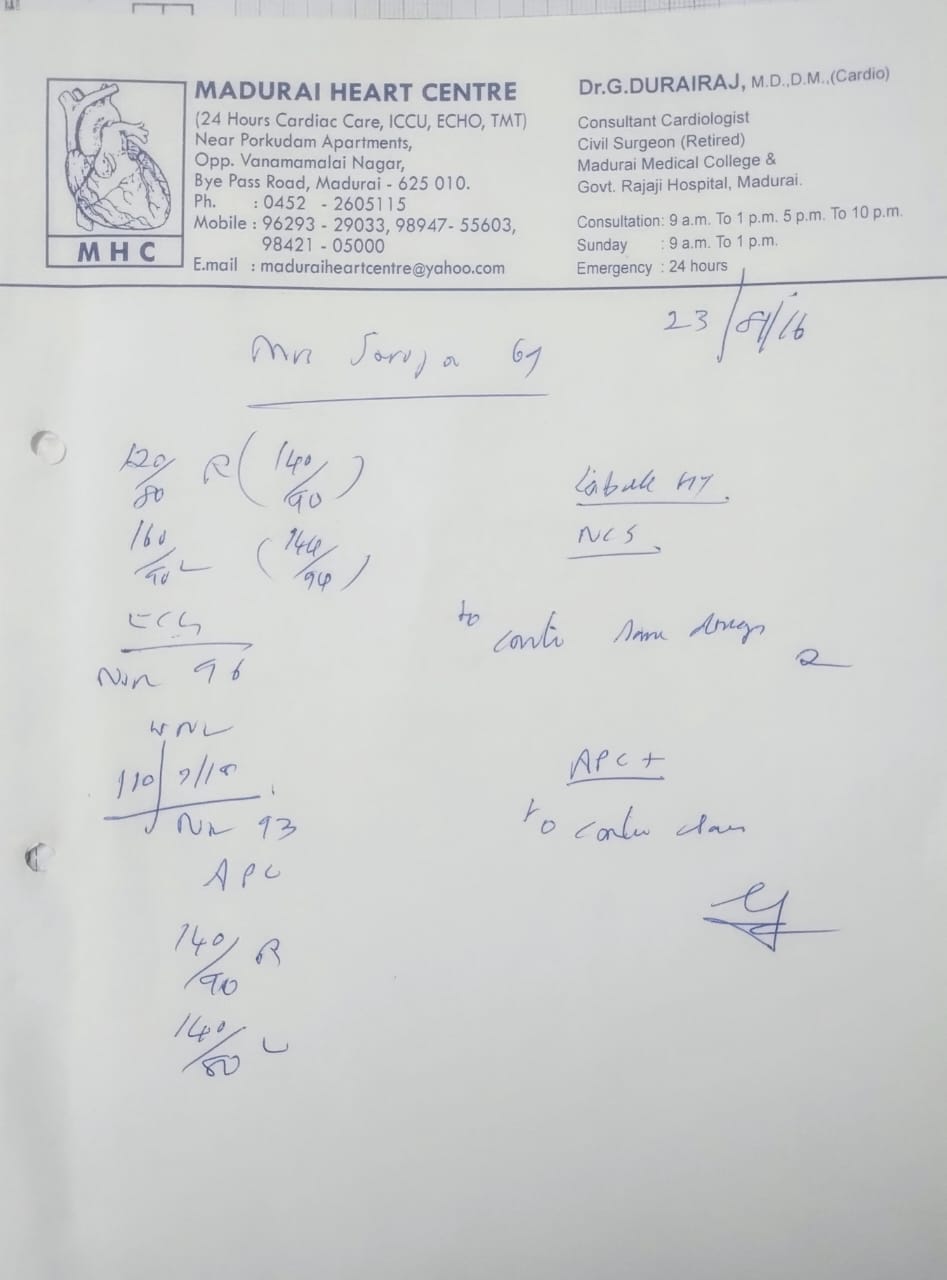 MADURAI HEART CENTRE
(24 Hours Cardiac Care, ICCU, ECHO, TMT)
Near Porkudam Apartments,
Opp. Vanamamalai Nagar,
Bye Pass Road, Madurai - 625 010.
Ph. : 0452 - 2605115
Mobile : 96293 - 29033, 98947- 55603,
98421 - 05000
E.mail : maduraiheartcentre@yahoo.com
MHC
Dr.G.DURAIRAJ, M.D.,D.M.,(Cardio)
Consultant Cardiologist
Civil Surgeon (Retired)
Madurai Medical College &
Govt. Rajaji Hospital, Madurai.
Consultation: 9 a.m. To 1 p.m. 5 p.m. To 10 p.m.
Sunday : 9 a.m. To 1 p.m.
Emergency : 24 hours
23/ /16
Saroja
120/80 R (140/90)
160/90 L (144/94)
ECG
96
WNL
93
APC
140/90 R
140/80 L
NCS
to conti same drugs
APC +
to